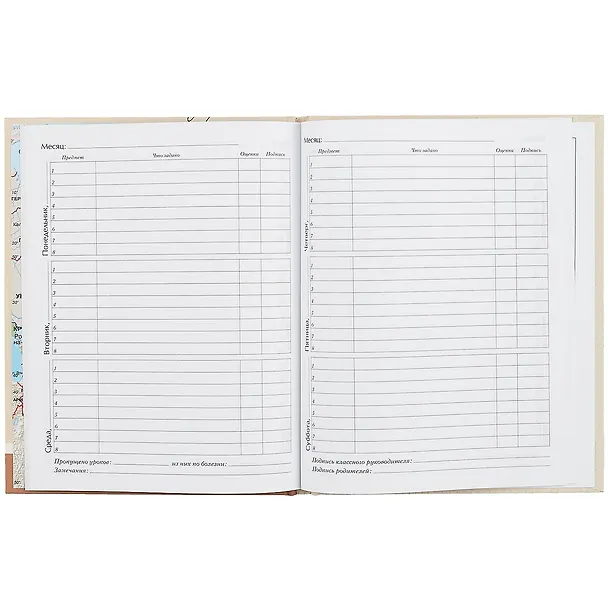 Месяц:
Предмет Что задано Оценки Подпись
Понедельник,
1
2
3
4
5
6
7
8
Вторник,
1
2
3
4
5
6
7
8
Среда,
1
2
3
4
5
6
7
8
Пропущено уроков: из них по болезни:
Замечания:
Месяц:
Предмет Что задано Оценки Подпись
Четверг,
1
2
3
4
5
6
7
8
Пятница,
1
2
3
4
5
6
7
8
Суббота,
1
2
3
4
5
6
7
8
Подпись классного руководителя:
Подпись родителей: